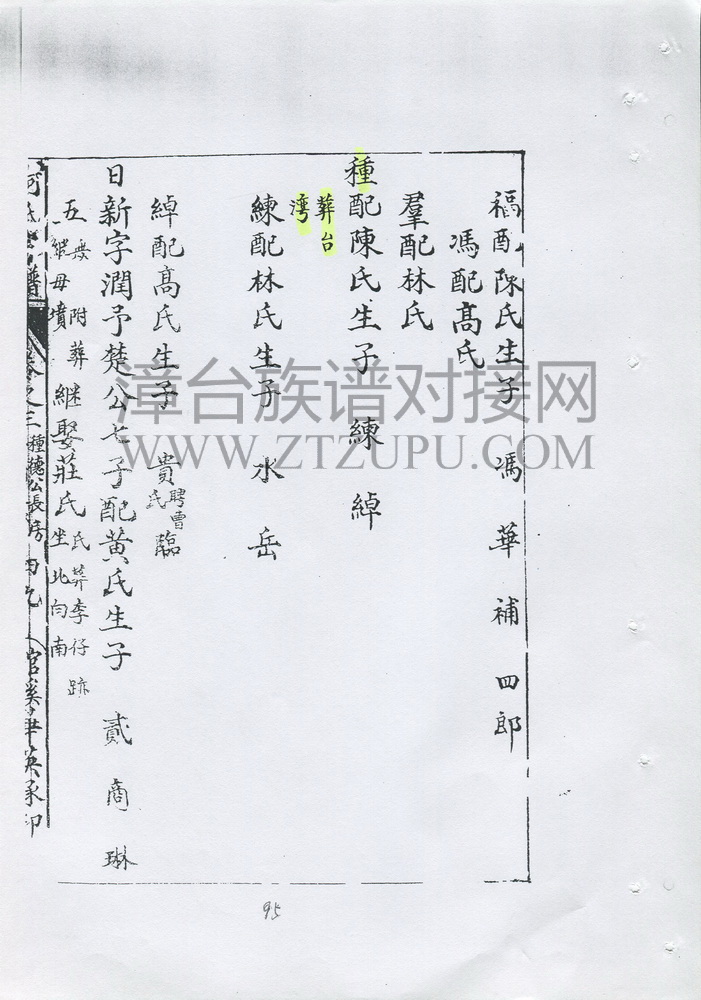 福配陳氏生子 馮 華 補 四郎
馮配高氏
羣配林氏
種配陳氏生子 練 綽
葬台
湾
練配林氏生子 水 岳
綽配高氏生子 貴 聘曹氏 臨
日新字潤予楚公七子配黃氏生子 貳 商 琳
五 附葬
継母墳 継娶莊氏 氏葬李仔跡
坐北向南
譜 卷之三 種德公長房
95
漳台族谱对接网
WWW.ZTZUPU.COM